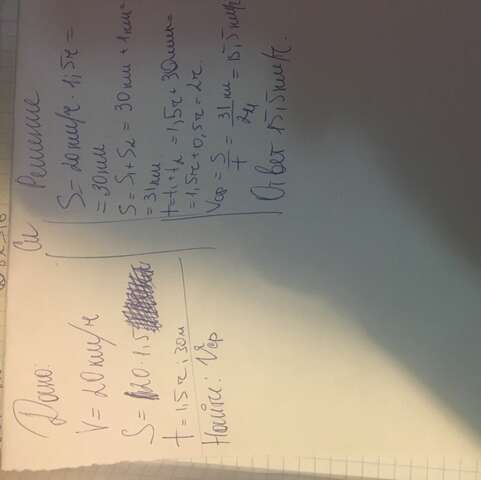 Дано:
V = 20км/ч
S = 20·1,5
t = 1,5ч, 30м
Найти: Vср
Си
Решение
S = 20км/ч · 1,5ч =
= 30км
S = S1+S2 = 30км + 1км=
= 31км
t=t1+t2 = 1,5ч + 30мин=
= 1,5ч + 0,5ч = 2ч.
Vср = S/t = 31км/2ч = 15,5км/ч
Ответ 15,5км/ч.